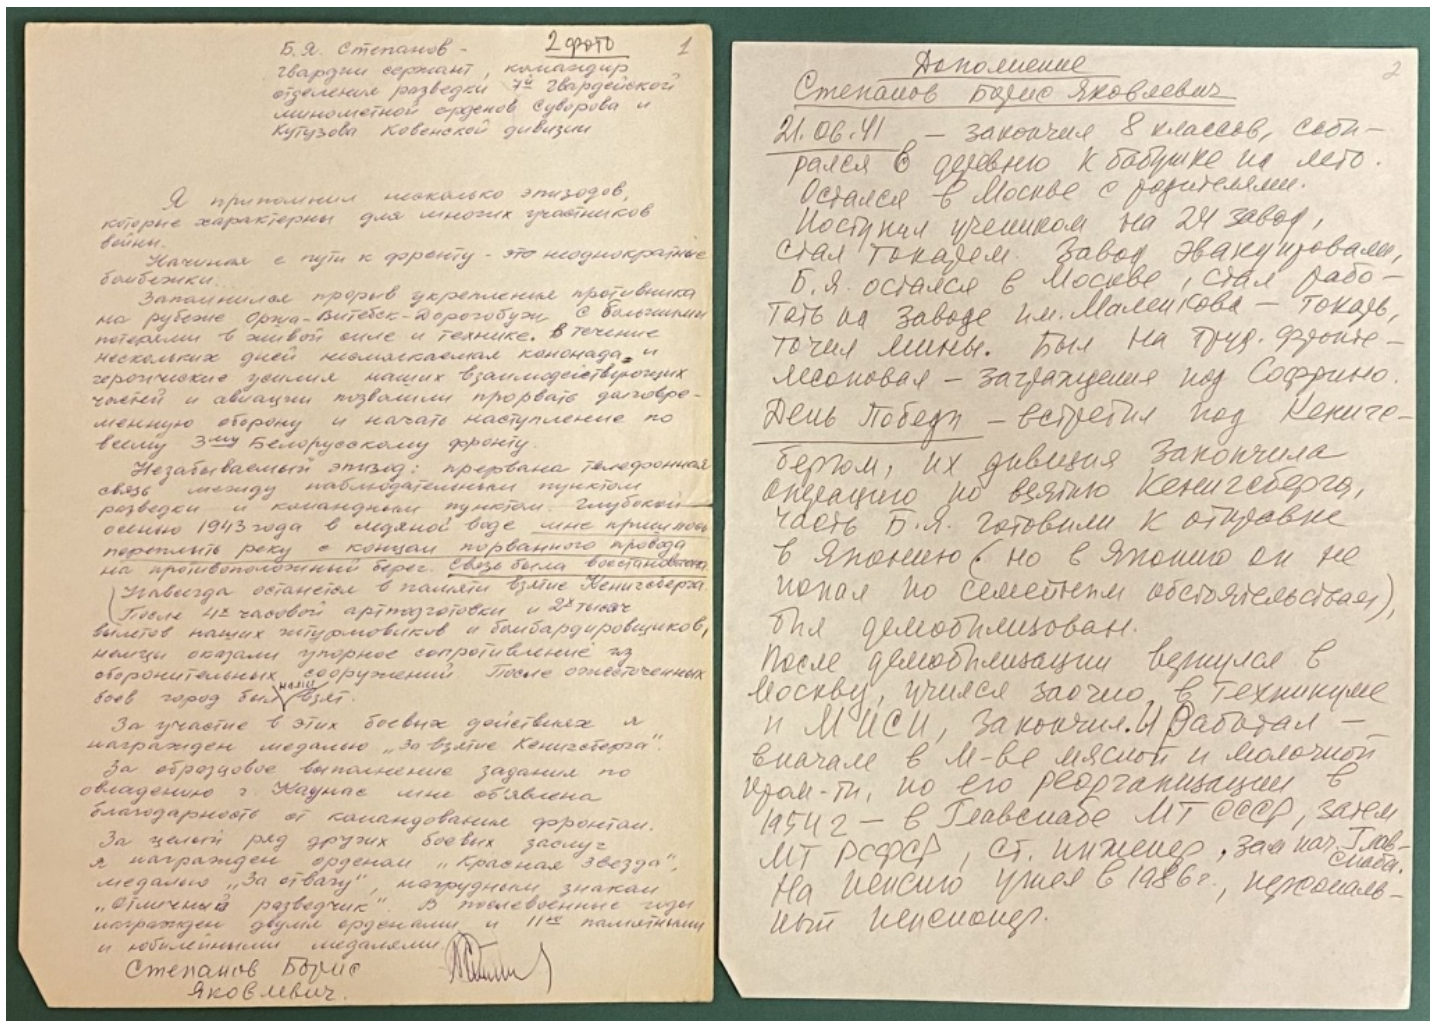 Б.Я. Степанов -
2 фото
1
гвардии сержант, командир
отделения разведки 7й гвардейской
минометной орденов Суворова и
Кутузова Ковенской дивизии
Я припомнил несколько эпизодов,
которые характерны для многих участников
войны.
Начиная с пути к фронту - это неоднократные
бомбежки.
Запомнился прорыв укрепления противника
на рубеже Орша-Витебск-Дорогобуж с большими
потерями в живой силе и технике. В течение
нескольких дней несмолкаемая кононада и
героические усилия наших взаимодействующих
частей и авиации позволили прорвать долговре-
менную оборону и начать наступление по
всему 3му Белорусскому фронту.
Незабываемый эпизод: прервана телефонная
связь между наблюдательным пунктом
разведки и командным пунктом. Глубокой
осенью 1943 года в ледяной воде мне пришлось
переплыть реку с концом порванного провода
на противоположный берег. Связь была восстановлена
Навсегда останется в памяти взятие Кенигсберга.
После 4х часовой артподготовки и 2х тысяч
вылетов наших штурмовиков и бомбардировщиков,
немцы оказали упорное сопротивление из
оборонительных сооружений После ожесточенных
боев город был нами взят.
За участие в этих боевых действиях я
награжден медалью „За взятие Кенигсберга".
За образцовое выполнение задания по
овладению г. Каунас мне об'явлена
благодарность от командования фронтом.
За целый ряд других боевых заслуг
я награжден орденом „Красная звезда",
медалью „За отвагу", нагрудным знаком
„Отличный разведчик". В послевоенные годы
награжден двумя орденами и 11ю памятными
и юбилейными медалями.
Степанов Борис
Яковлевич.
2
Дополнение
Степанов Борис Яковлевич
21.06.41 - закончил 8 классов, соби-
рался в деревню к бабушке на лето.
Остался в Москве с родителями.
Поступил учеником на 24 завод,
стал токарем. Завод эвакуировали,
Б.Я. остался в Москве, стал рабо-
тать на заводе им. Маленкова - токарь,
точил мины. Был на труд. фронте -
лесоповал - заграждения под Софрино.
День Победы - встретил под Кениге-
бергом, их дивизия закончила
операцию по взятию Кенигсберга,
часть Б.Я. готовили к отправке
в Японию (но в Японию он не
попал по семейным обстоятельствам),
был демобилизован.
После демобилизации вернулся в
Москву, учился заочно в техникуме
и МИСИ, закончил. И работал -
вначале в М-ве мясной и молочной
пром-ти, по его реорганизации в
1954 г - в Главснабе МТ СССР, затем
МТ РСФСР, ст. инженер, зам нач. Глав-
снаба.
На пенсию ушел в 1986г., персональ-
ный пенсионер.